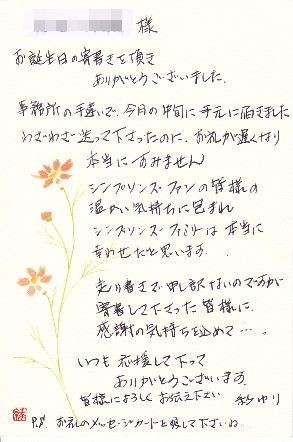 様
お誕生日の寄書きを頂き
ありがとうございました。
事務所の手違いで、今月の中旬に手元に届きました
わざわざ送って下さったのに、お礼が遅くなり
本当にすみません
シンプソンズ・ファンの皆様の
温かい気持ちに包まれ
シンプソンズ・ファミリーは本当に
幸わせだと思います。
走り書きで申し訳ないのですが
寄書して下さった皆様に
感謝の気持ちを込めて…。
いつも応援して下って
ありがとうございます
皆様によろしくお伝え下さい
ゆり
P.S お礼のメッセージカードを渡して下さいね。